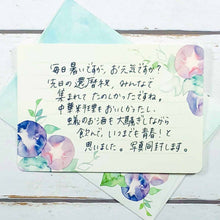 毎日暑いですが、お元気ですか？
先日の還暦祝、みんなで
集まれて たのしかったですね。
中華料理もおいしかったし、
蟻のお酒も大騒ぎしながら
飲んで、いつまでも青春！と
思いました。写真同封します。